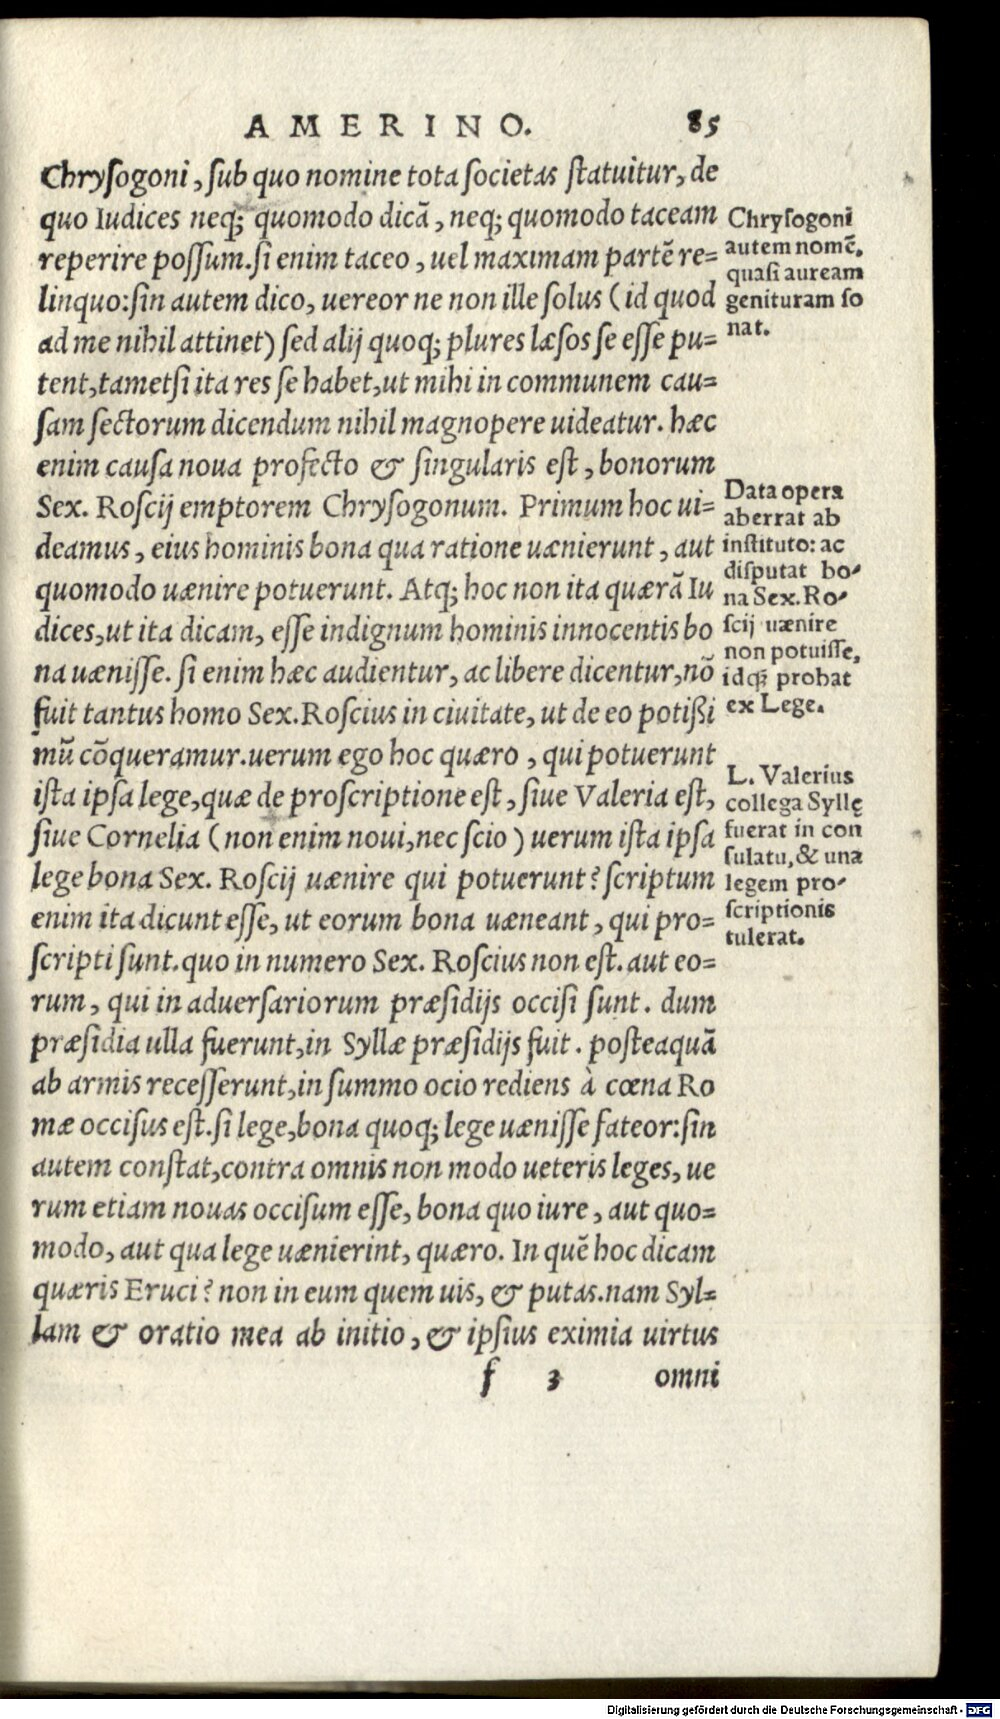 AMERINO. 85
Chryſogoni, ſub quo nomine tota ſocietas ſtatuitur, de
quo Iudices neq; quomodo dicã, neq; quomodo taceam
reperire poſſum. ſi enim taceo, uel maximam partẽ re=
linquo: ſin autem dico, uereor ne non ille ſolus (id quod
ad me nihil attinet) ſed alij quoq; plures læſos ſe eſſe pu=
tent, tametſi ita res ſe habet, ut mihi in communem cau=
ſam ſectorum dicendum nihil magnopere uideatur. hæc
enim cauſa noua profecto & ſingularis eſt, bonorum
Sex. Roſcij emptorem Chryſogonum. Primum hoc ui=
deamus, eius hominis bona qua ratione uænierunt, aut
quomodo uænire potuerunt. Atq; hoc non ita quærã Iu
dices, ut ita dicam, eſſe indignum hominis innocentis bo
na uæniſſe. ſi enim hæc audientur, ac libere dicentur, nõ
fuit tantus homo Sex. Roſcius in ciuitate, ut de eo potißi
mũ cõqueramur. uerum ego hoc quæro, qui potuerunt
iſta ipſa lege, quæ de proſcriptione eſt, ſiue Valeria eſt,
ſiue Cornelia (non enim noui, nec ſcio) uerum iſta ipſa
lege bona Sex. Roſcij uænire qui potuerunt? ſcriptum
enim ita dicunt eſſe, ut eorum bona uæneant, qui pro=
ſcripti ſunt. quo in numero Sex. Roſcius non eſt. aut eo=
rum, qui in aduerſariorum præſidijs occiſi ſunt. dum
præſidia ulla fuerunt, in Syllæ præſidijs fuit. poſteaquã
ab armis receſſerunt, in ſummo ocio rediens à cœna Ro
mæ occiſus eſt. ſi lege, bona quoq; lege uæniſſe fateor: ſin
autem conſtat, contra omnis non modo ueteris leges, ue
rum etiam nouas occiſum eſſe, bona quo iure, aut quo=
modo, aut qua lege uænierint, quæro. In quẽ hoc dicam
quæris Eruci? non in eum quem uis, & putas. nam Syl=
lam & oratio mea ab initio, & ipſius eximia uirtus
f 3 omni
Chryſogoni
autem nomẽ,
quaſi auream
genituram ſo
nat.
Data opera
aberrat ab
inſtituto: ac
diſputat bo-
na Sex. Ro-
ſcij uænire
non potuiſſe,
idq; probat
ex Lege.
L. Valerius
collega Syllę
fuerat in con
ſulatu, & una
legem pro-
ſcriptionis
tulerat.
Digitalisierung gefördert durch die Deutsche Forschungsgemeinschaft - DFG